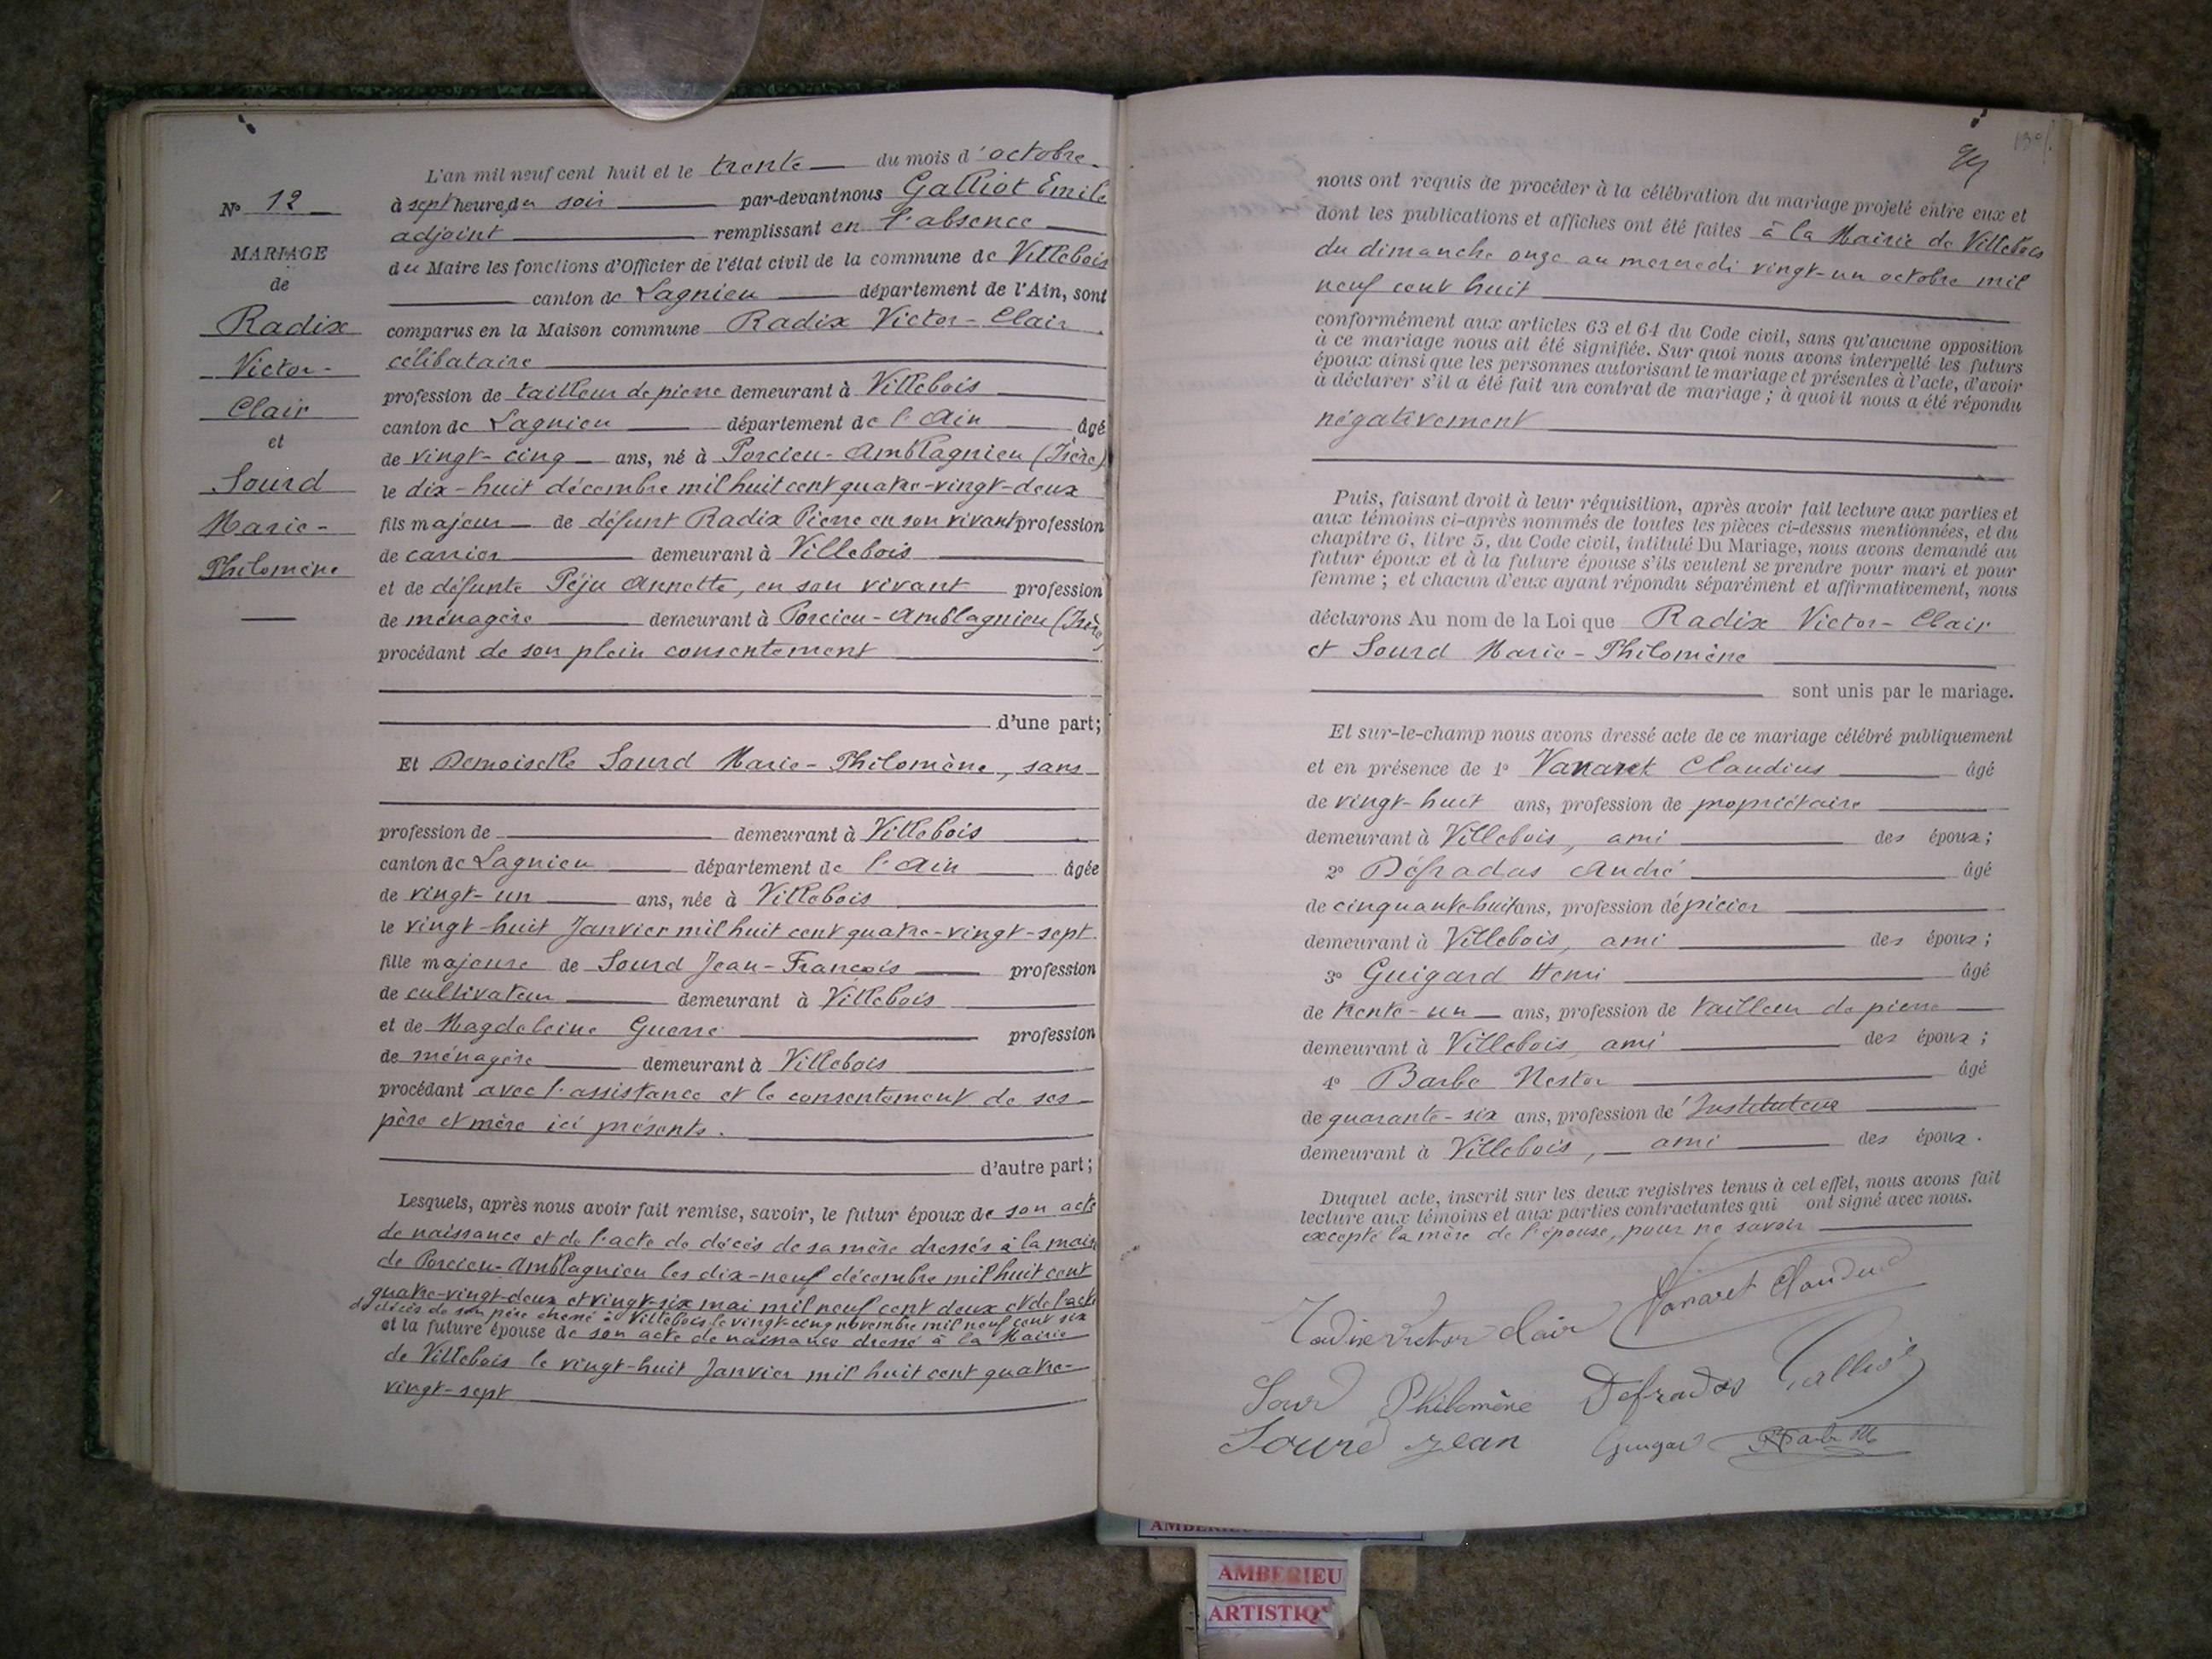 L'an mil neuf cent huit et le trente du mois d'octobre
à sept heures du soir par-devant nous Galliot Emile
adjoint remplissant en l'absence
du Maire les fonctions d'Officier de l'état civil de la commune de Villebois
canton de Lagnieu département de l'Ain, sont
comparus en la Maison commune Radix Victor-Clair
célibataire
profession de tailleur de pierre demeurant à Villebois
canton de Lagnieu département de l'Ain âgé
de vingt-cinq ans, né à Porcieu-Amblagnieu (Isère)
le dix-huit décembre mil huit cent quatre-vingt-deux
fils majeur de défunt Radix Pierre en son vivant profession
de carrier demeurant à Villebois
et de défunte Péju Annette, en son vivant profession
de ménagère demeurant à Porcieu-Amblagnieu (Isère)
procédant de son plein consentement
d'une part;
Et Demoiselle Sourd Marie-Philomène, sans
profession de demeurant à Villebois
canton de Lagnieu département de l'Ain âgée
de vingt-un ans, née à Villebois
le vingt-huit Janvier mil huit cent quatre-vingt-sept
fille majeure de Sourd Jean-François profession
de cultivateur demeurant à Villebois
et de Magdeleine Guerre profession
de ménagère demeurant à Villebois
procédant avec l'assistance et le consentement de ses
père et mère ici présents.
d'autre part;
Lesquels, après nous avoir fait remise, savoir, le futur époux de son acte
de naissance et de l'acte de décès de sa mère dressés à la mairie
de Porcieu-Amblagnieu les dix-neuf décembre mil huit cent
quatre-vingt-deux et vingt-six mai mil neuf cent deux et de l'acte
de décès de son père dressé à Villebois le vingt-cinq novembre mil neuf cent six
et la future épouse de son acte de naissance dressé à la Mairie
de Villebois le vingt-huit Janvier mil huit cent quatre-
vingt-sept
N° 12
MARIAGE
de
Radix
Victor-
Clair
et
Sourd
Marie-
Philomène
nous ont requis de procéder à la célébration du mariage projeté entre eux et
dont les publications et affiches ont été faites à la Mairie de Villebois
du dimanche onze au mercredi vingt-un octobre mil
neuf cent huit
conformément aux articles 63 et 64 du Code civil, sans qu'aucune opposition
à ce mariage nous ait été signifiée. Sur quoi nous avons interpellé les futurs
époux ainsi que les personnes autorisant le mariage et présentes à l'acte, d'avoir
à déclarer s'il a été fait un contrat de mariage; à quoi il nous a été répondu
négativement
Puis, faisant droit à leur réquisition, après avoir fait lecture aux parties et
aux témoins ci-après nommés de toutes les pièces ci-dessus mentionnées, et du
chapitre 6, titre 5, du Code civil, intitulé Du Mariage, nous avons demandé au
futur époux et à la future épouse s'ils veulent se prendre pour mari et pour
femme; et chacun d'eux ayant répondu séparément et affirmativement, nous
déclarons Au nom de la Loi que Radix Victor-Clair
et Sourd Marie-Philomène
sont unis par le mariage.
Et sur-le-champ nous avons dressé acte de ce mariage célébré publiquement
et en présence de 1° Vanaret Claudius âgé
de vingt-huit ans, profession de propriétaire
demeurant à Villebois, ami des époux;
2° Défradas André âgé
de cinquante-huit ans, profession d'épicier
demeurant à Villebois, ami des époux;
3° Guigard Henri âgé
de trente-un ans, profession de tailleur de pierre
demeurant à Villebois, ami des époux;
4° Barbe Nestor âgé
de quarante-six ans, profession d'Instituteur
demeurant à Villebois, ami des époux.
Duquel acte, inscrit sur les deux registres tenus à cet effet, nous avons fait
lecture aux témoins et aux parties contractantes qui ont signé avec nous.
excepté la mère de l'épouse, pour ne savoir
Radix Victor Clair Vanaret Claudius
Sourd Philomène Defradas Galliot
Sourd Jean Guigard
AMBERIEU
ARTISTIQ